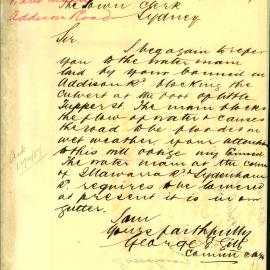 The Town Clerk
Addison Road Sydney
Sir
I beg again to refer
you to the water main
laid by your council in
Addison Rd blocking the
culvert at the foot of little
Tupper St. The main blocks
the flow of water & causes
the road to be flooded in
wet weather your attention
to this will oblige my Council
The water main at the corner
of Illawarra Rd & Sydenham
Rd requires to be lowered
at present it is in our
gutter.
I am
Yours faithfully
George
Council Clerk